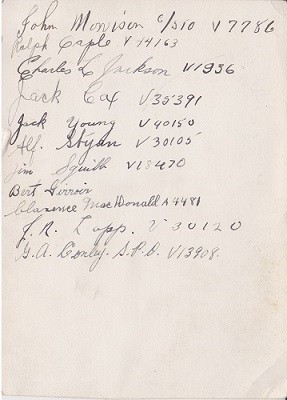 John Morrison C/S10 V7786
Ralph Caple V44163
Charles L Jackson V1936
Jack Cox V35391
Jack Young V40150
Alf. Styan V30105
Jim Squibb V18470
Bert
Clarence MacDonald A4481
J. R. Lapp. V30120
G. A. Conley. S.P.O. V13908.